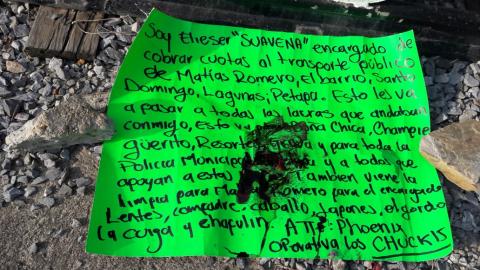 Soy Elieser "SUAVENA" encargado de
cobrar cuotas al transporte público
de Matías Romero, El barrio, Santo
Domingo, Lagunas, Petapa. Esto les va
a pasar a todas las lacras que andaban
conmigo, Esto va Chica, Champi
guerito, Resortes, y para toda la
Policia Municipal y a todos que
apoyan a estas También viene la
limpia para Romero para el encargado
Lentes, compadre, caballo, Japones, el Gordo
la cuya y chapulin. ATTE: Phoenix
Operativa los CHUCKIS